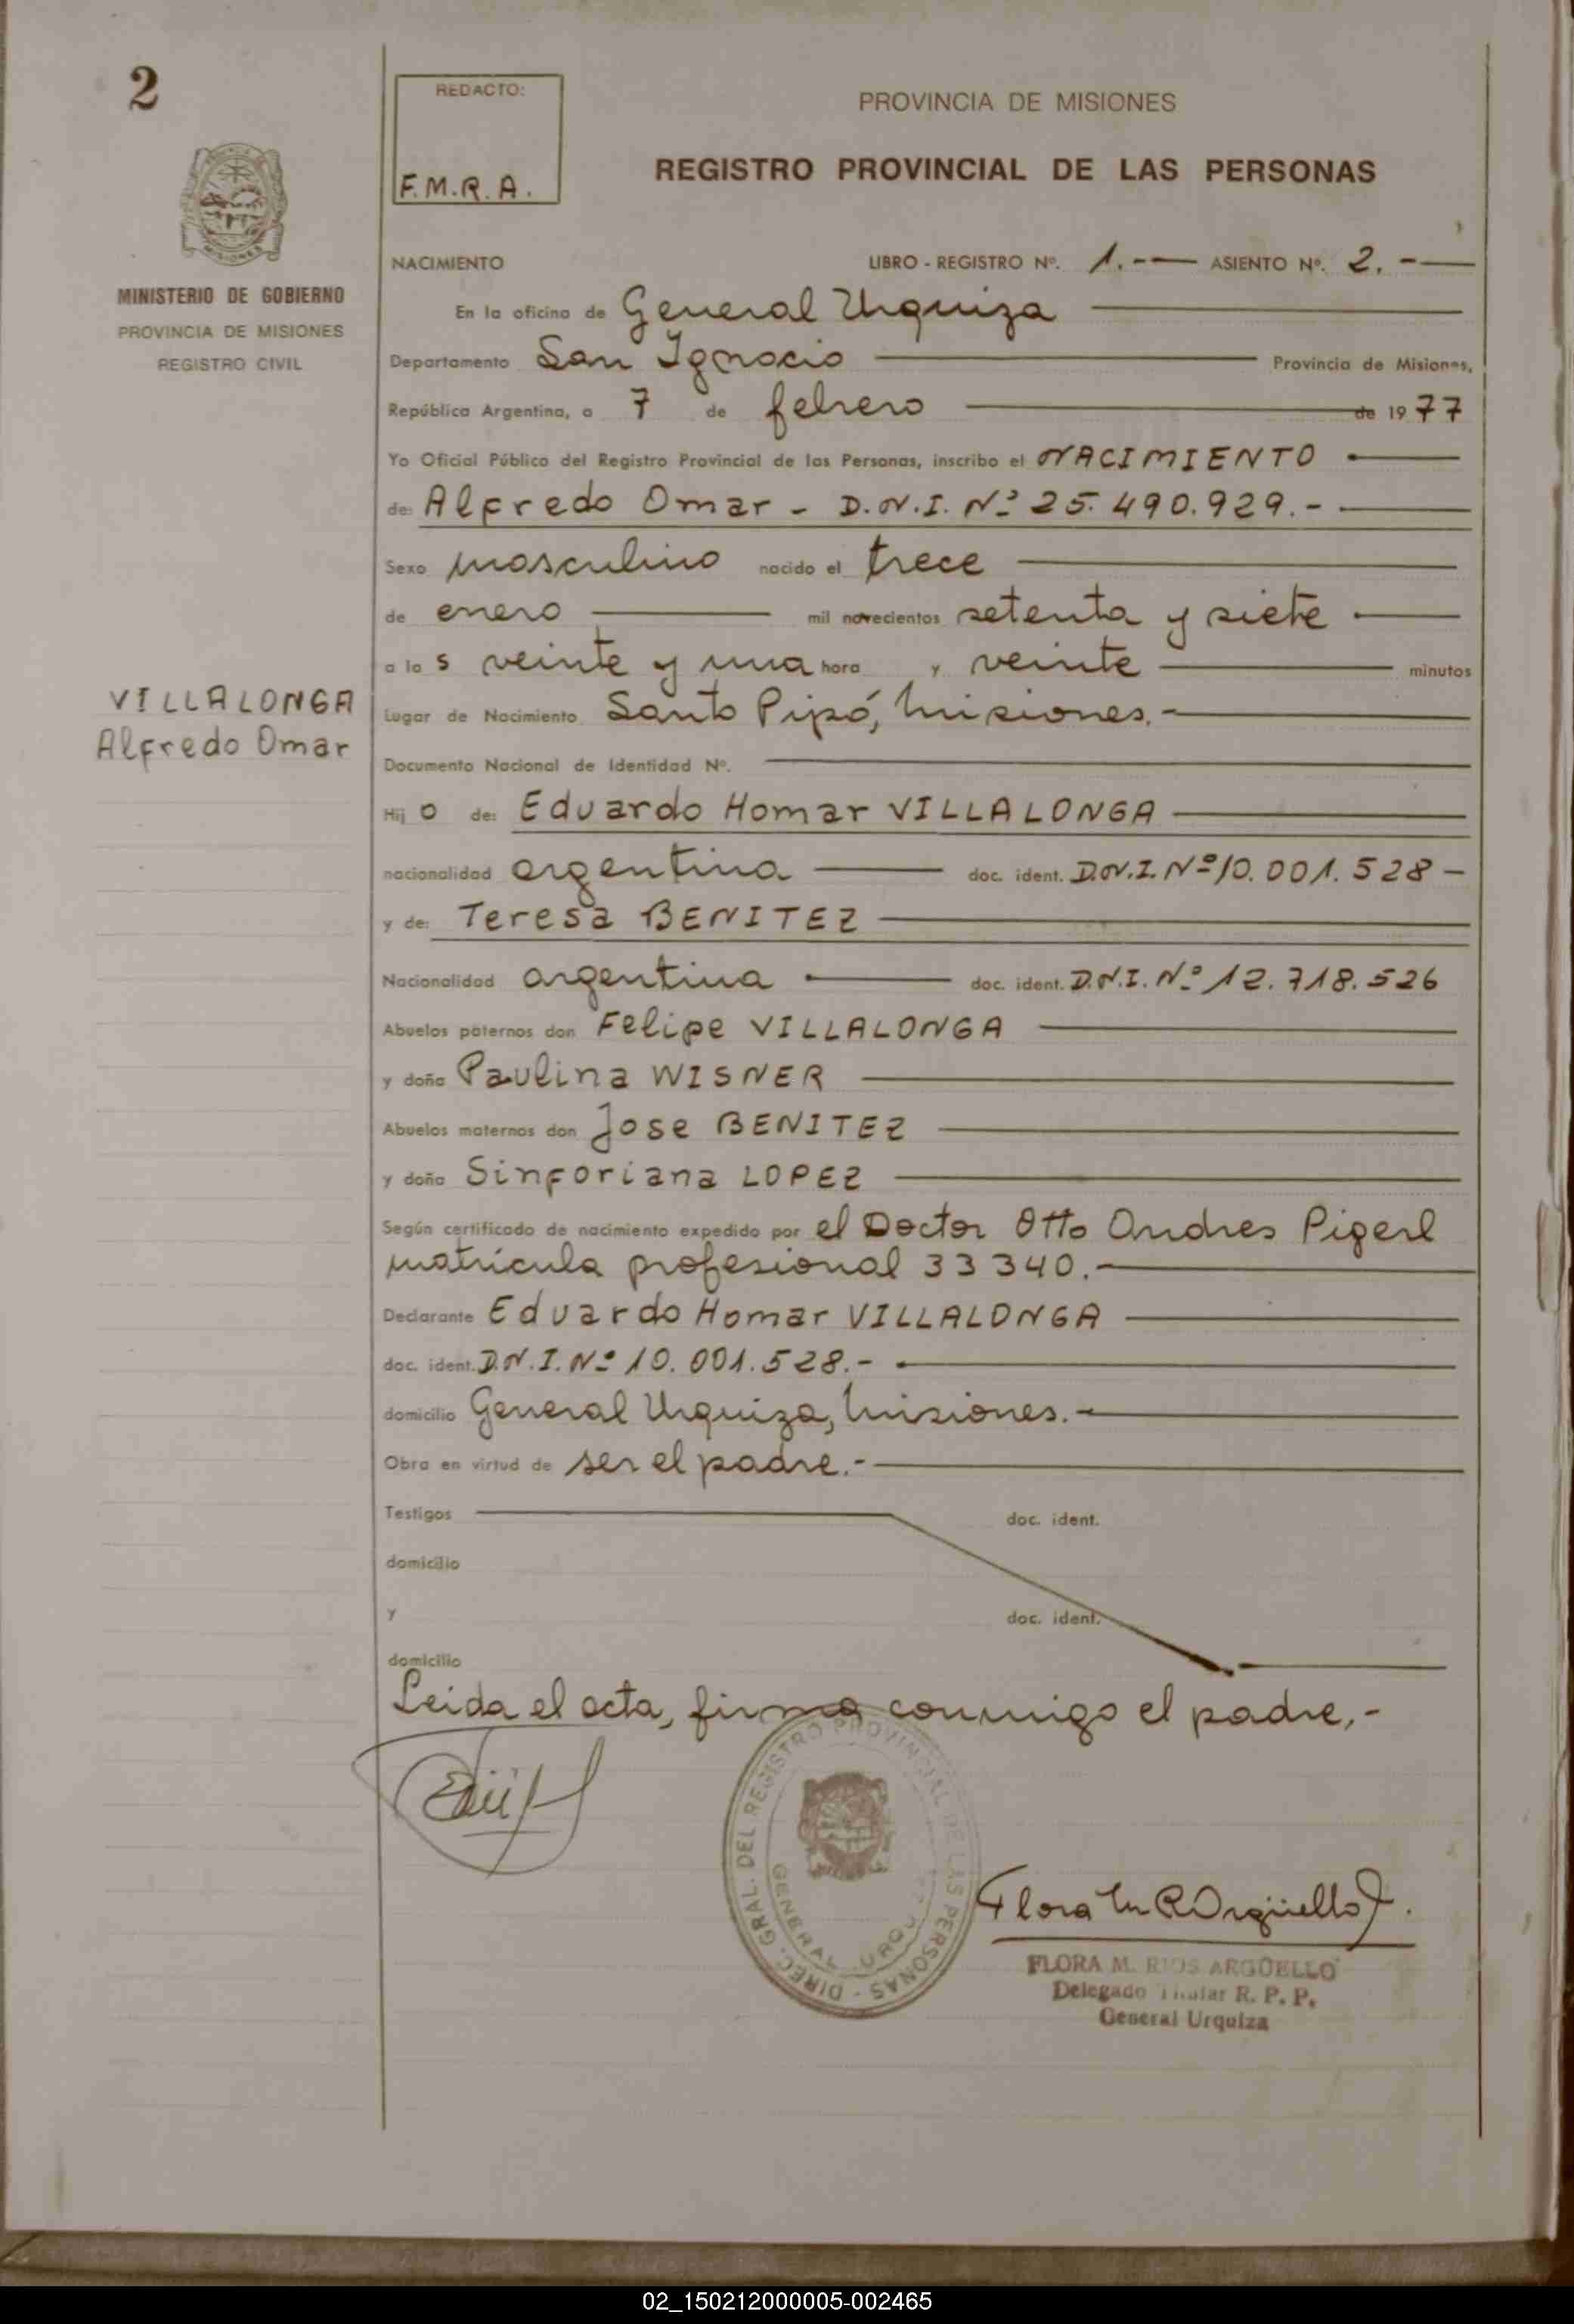 2
REDACTO:
F.M.R.A.
PROVINCIA DE MISIONES
REGISTRO PROVINCIAL DE LAS PERSONAS
MINISTERIO DE GOBIERNO
PROVINCIA DE MISIONES
REGISTRO CIVIL
VILLALONGA
Alfredo Omar
NACIMIENTO LIBRO - REGISTRO Nº. 1.-- ASIENTO Nº. 2.-
En la oficina de General Urquiza
Departamento San Ignacio Provincia de Misiones,
República Argentina, a 7 de febrero de 1977
Yo Oficial Público del Registro Provincial de las Personas, inscribo el NACIMIENTO
de: Alfredo Omar - D.N.I. Nº 25.490.929.-
Sexo masculino nacido el trece
de enero mil novecientos setenta y siete
a las veinte y una hora y veinte minutos
Lugar de Nacimiento Santo Pipó, Misiones.-
Documento Nacional de Identidad Nº.
Hijo de: Eduardo Homar VILLALONGA
nacionalidad argentina doc. ident. D.N.I. Nº 10.001.528-
y de: Teresa BENITEZ
Nacionalidad argentina doc. ident. D.N.I. Nº 12.718.526
Abuelos paternos don Felipe VILLALONGA
y doña Paulina WISNER
Abuelos maternos don Jose BENITEZ
y doña Sinforiana LOPEZ
Según certificado de nacimiento expedido por el Doctor Otto Andres Pigerl
matrícula profesional 33340.-
Declarante Eduardo Homar VILLALONGA
doc. ident. D.N.I. Nº 10.001.528.-
domicilio General Urquiza, Misiones.-
Obra en virtud de ser el padre.-
Testigos doc. ident.
domicilio
y doc. ident.
domicilio
Leida el acta, firma conmigo el padre,-
DIREC. GRAL. DEL REGISTRO PROVINCIAL DE LAS PERSONAS -
GENERAL URQU
Flora M R Argüello
FLORA M. RIOS ARGÜELLO
Delegado Titular R. P. P.
General Urquiza
02_150212000005-002465